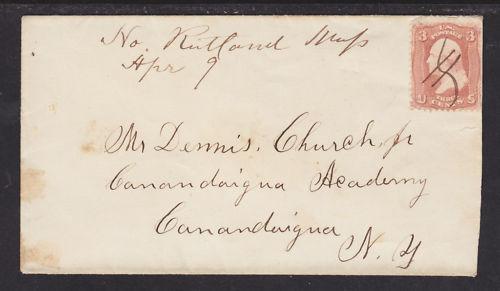 No. Rutland Mass
Apr 9
3 U.S. 3
POSTAGE
THREE
U CENTS S
Mr Dennis. Church, jr
Canandaigua Academy
Canandaigua
N. Y